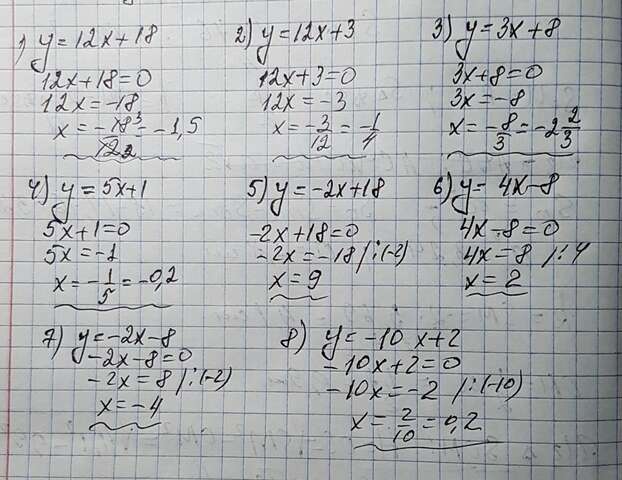 1) y=12x+18
12x+18=0
12x=-18
x=-18/12 3/2=-1,5
2) y=12x+3
12x+3=0
12x=-3
x=-3/12=-1/4
3) y=3x+8
3x+8=0
3x=-8
x=-8/3=-2 2/3
4) y=5x+1
5x+1=0
5x=-1
x=-1/5=-0,2
5) y=-2x+18
-2x+18=0
-2x=-18 /:(-2)
x=9
6) y=4x-8
4x-8=0
4x=8 /:4
x=2
7) y=-2x-8
-2x-8=0
-2x=8 /:(-2)
x=-4
8) y=-10x+2
-10x+2=0
-10x=-2 /:(-10)
x=2/10=0,2